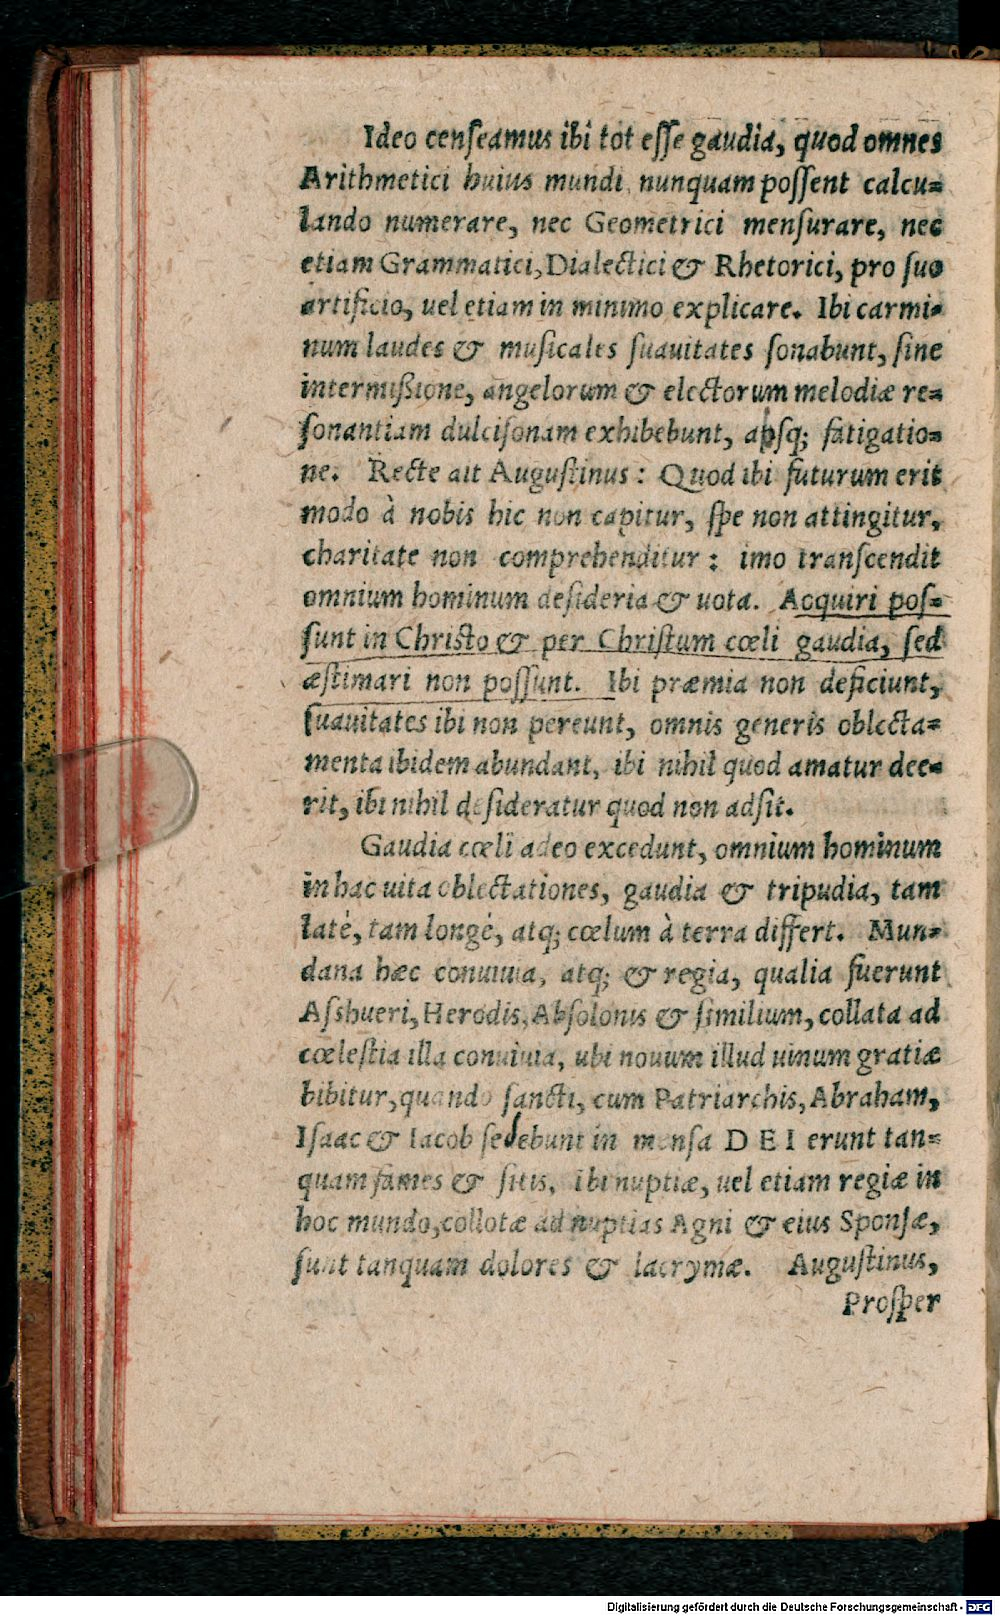 Ideo censeamus ibi tot esse gaudia, quod omnes
Arithmetici huius mundi nunquam possent calcu=
lando numerare, nec Geometrici mensurare, nec
etiam Grammatici, Dialectici & Rhetorici, pro suo
artificio, uel etiam in minimo explicare. Ibi carmi=
num laudes & musicales suauitates sonabunt, sine
intermißione, angelorum & electorum melodiæ re=
sonantiam dulcisonam exhibebunt, absq; fatigatio=
ne. Recte ait Augustinus: Quod ibi futurum erit
modo à nobis hic non capitur, spe non attingitur,
charitate non comprehenditur: imo transcendit
omnium hominum desideria & uota. Acquiri pos=
sunt in Christo & per Christum cœli gaudia, sed
æstimari non possunt. Ibi præmia non deficiunt,
suauitates ibi non pereunt, omnis generis oblecta=
menta ibidem abundant, ibi nihil quod amatur dee=
rit, ibi nihil desideratur quod non adsit.
Gaudia cœli adeo excedunt, omnium hominum
in hac uita oblectationes, gaudia & tripudia, tam
laté, tam longé, atq; cœlum à terra differt. Mun=
dana hæc conuiuia, atq; & regia, qualia fuerunt
Asshueri, Herodis, Absolonis & similium, collata ad
cœlestia illa conuiuia, ubi nouum illud uinum gratiæ
bibitur, quando sancti, cum Patriarchis, Abraham,
Isaac & Iacob sedebunt in mensa DEI erunt tan=
quam fames & sitis, ibi nuptiæ, uel etiam regiæ in
hoc mundo, collotæ ad nuptias Agni & eius Sponsæ,
sunt tanquam dolores & lacrymæ. Augustinus,
Prosper
Digitalisierung gefördert durch die Deutsche Forschungsgemeinschaft - DFG